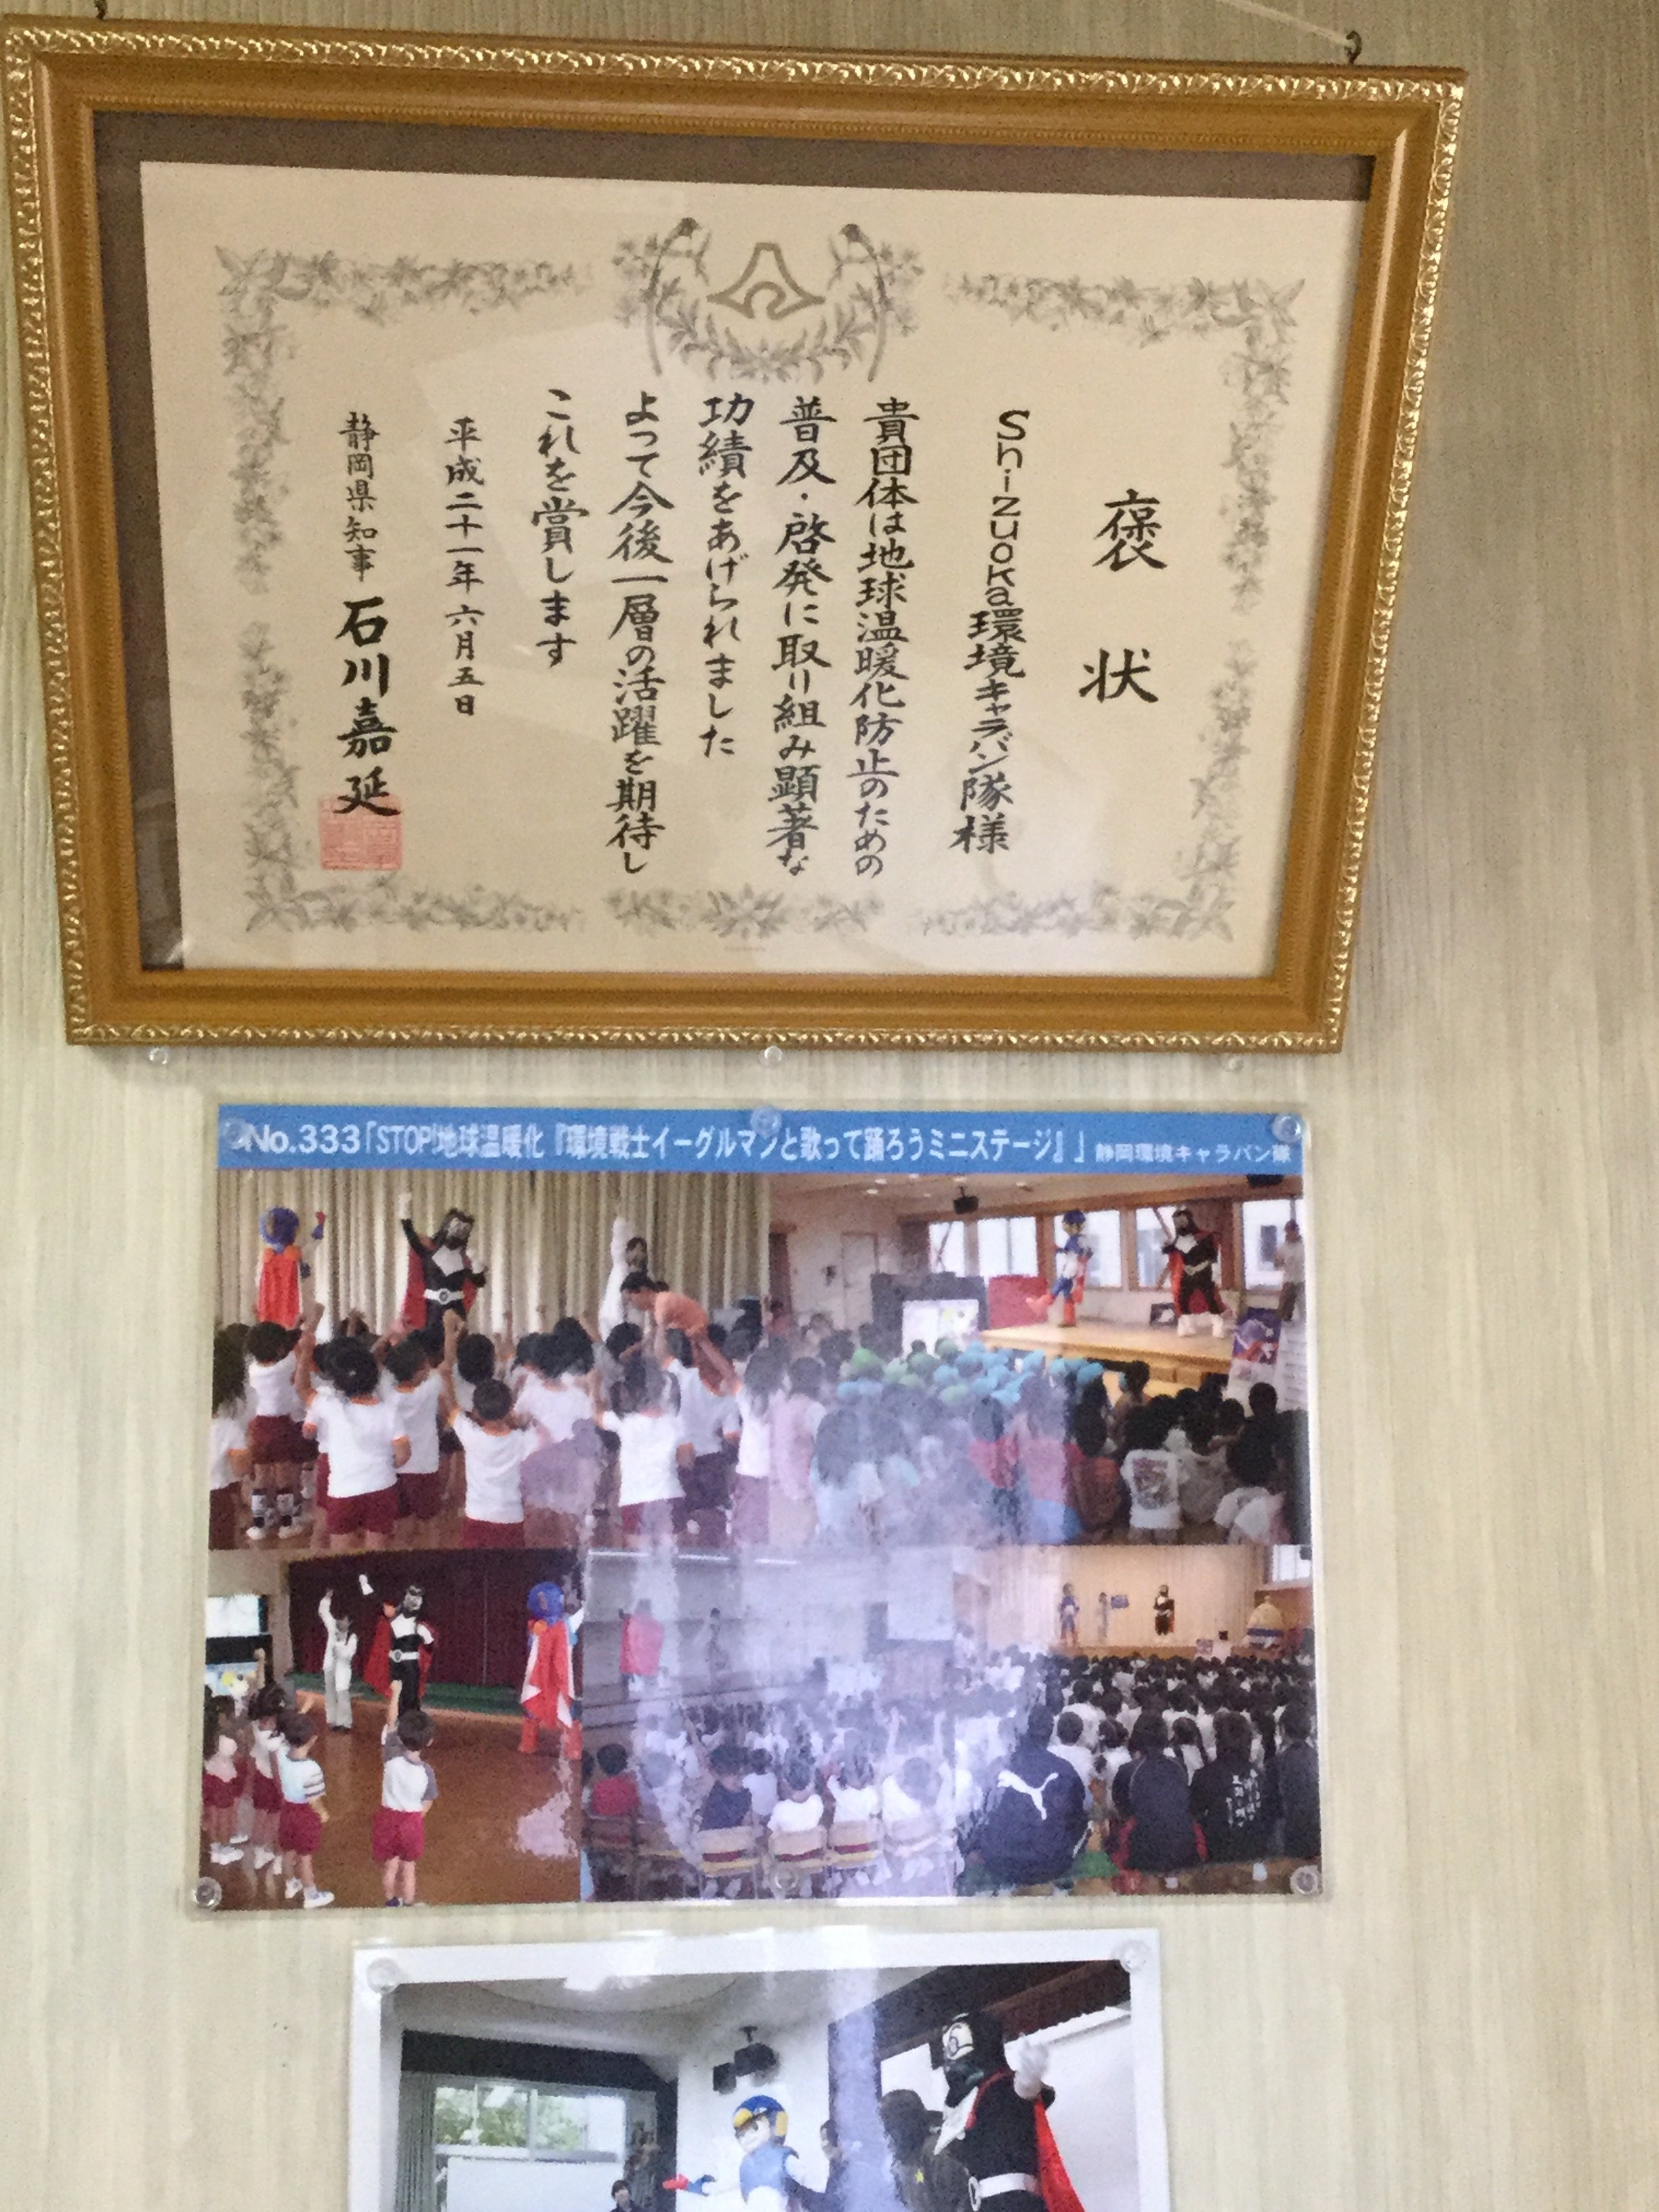 褒状
Shizuoka環境キャラバン隊様
貴団体は地球温暖化防止のための
普及・啓発に取り組み顕著な
功績をあげられました
よって今後一層の活躍を期待し
これを賞します
平成二十一年六月五日
静岡県知事 石川嘉延
No.333「STOP!地球温暖化『環境戦士イーグルマンと歌って踊ろうミニステージ』」静岡環境キャラバン隊